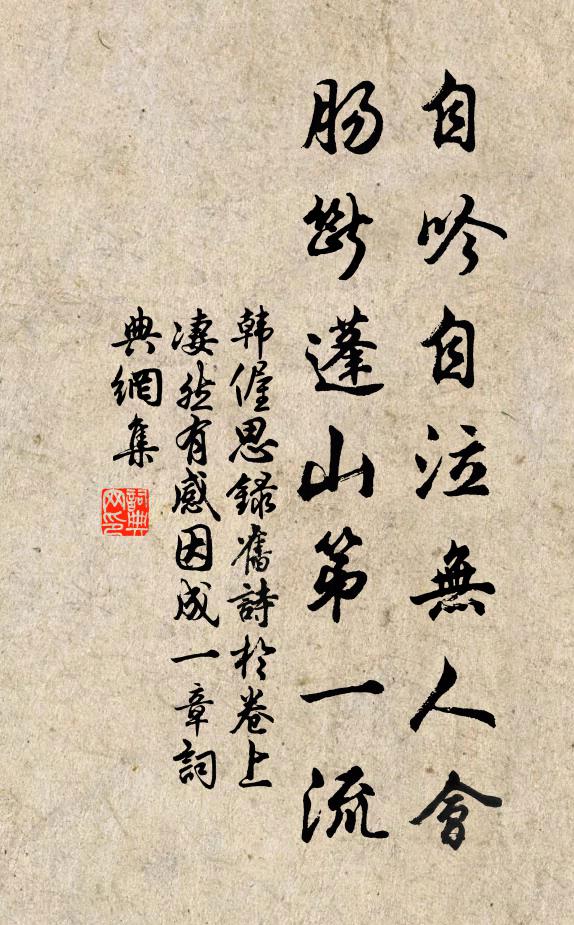 自吟自泣無人會
腸斷蓬山第一流
韓偓思錄舊詩於卷上
凄然有感因成一章詞
典網集
詞典网印